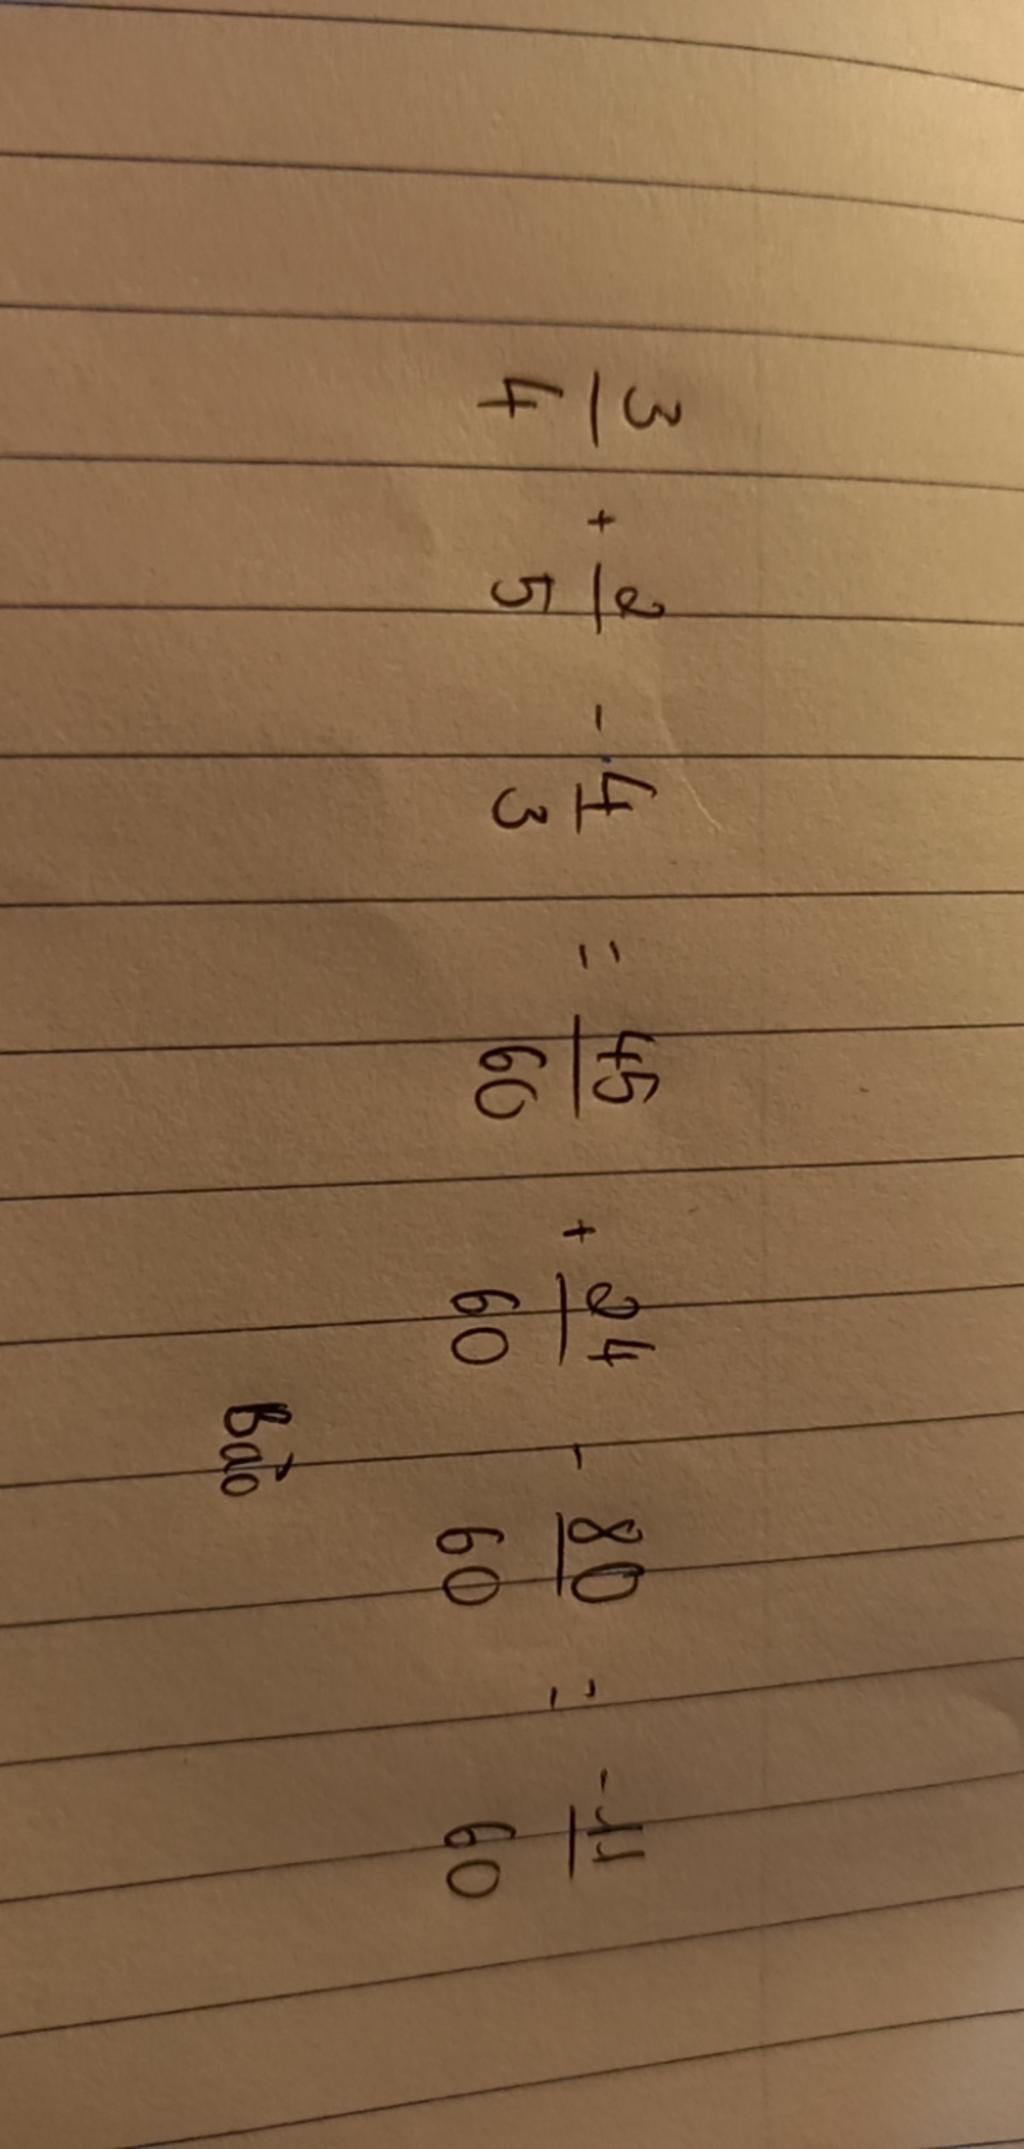 3/4 + 2/5 - 4/3 = 45/60 + 24/60 - 80/60 = -11/60
Bảo